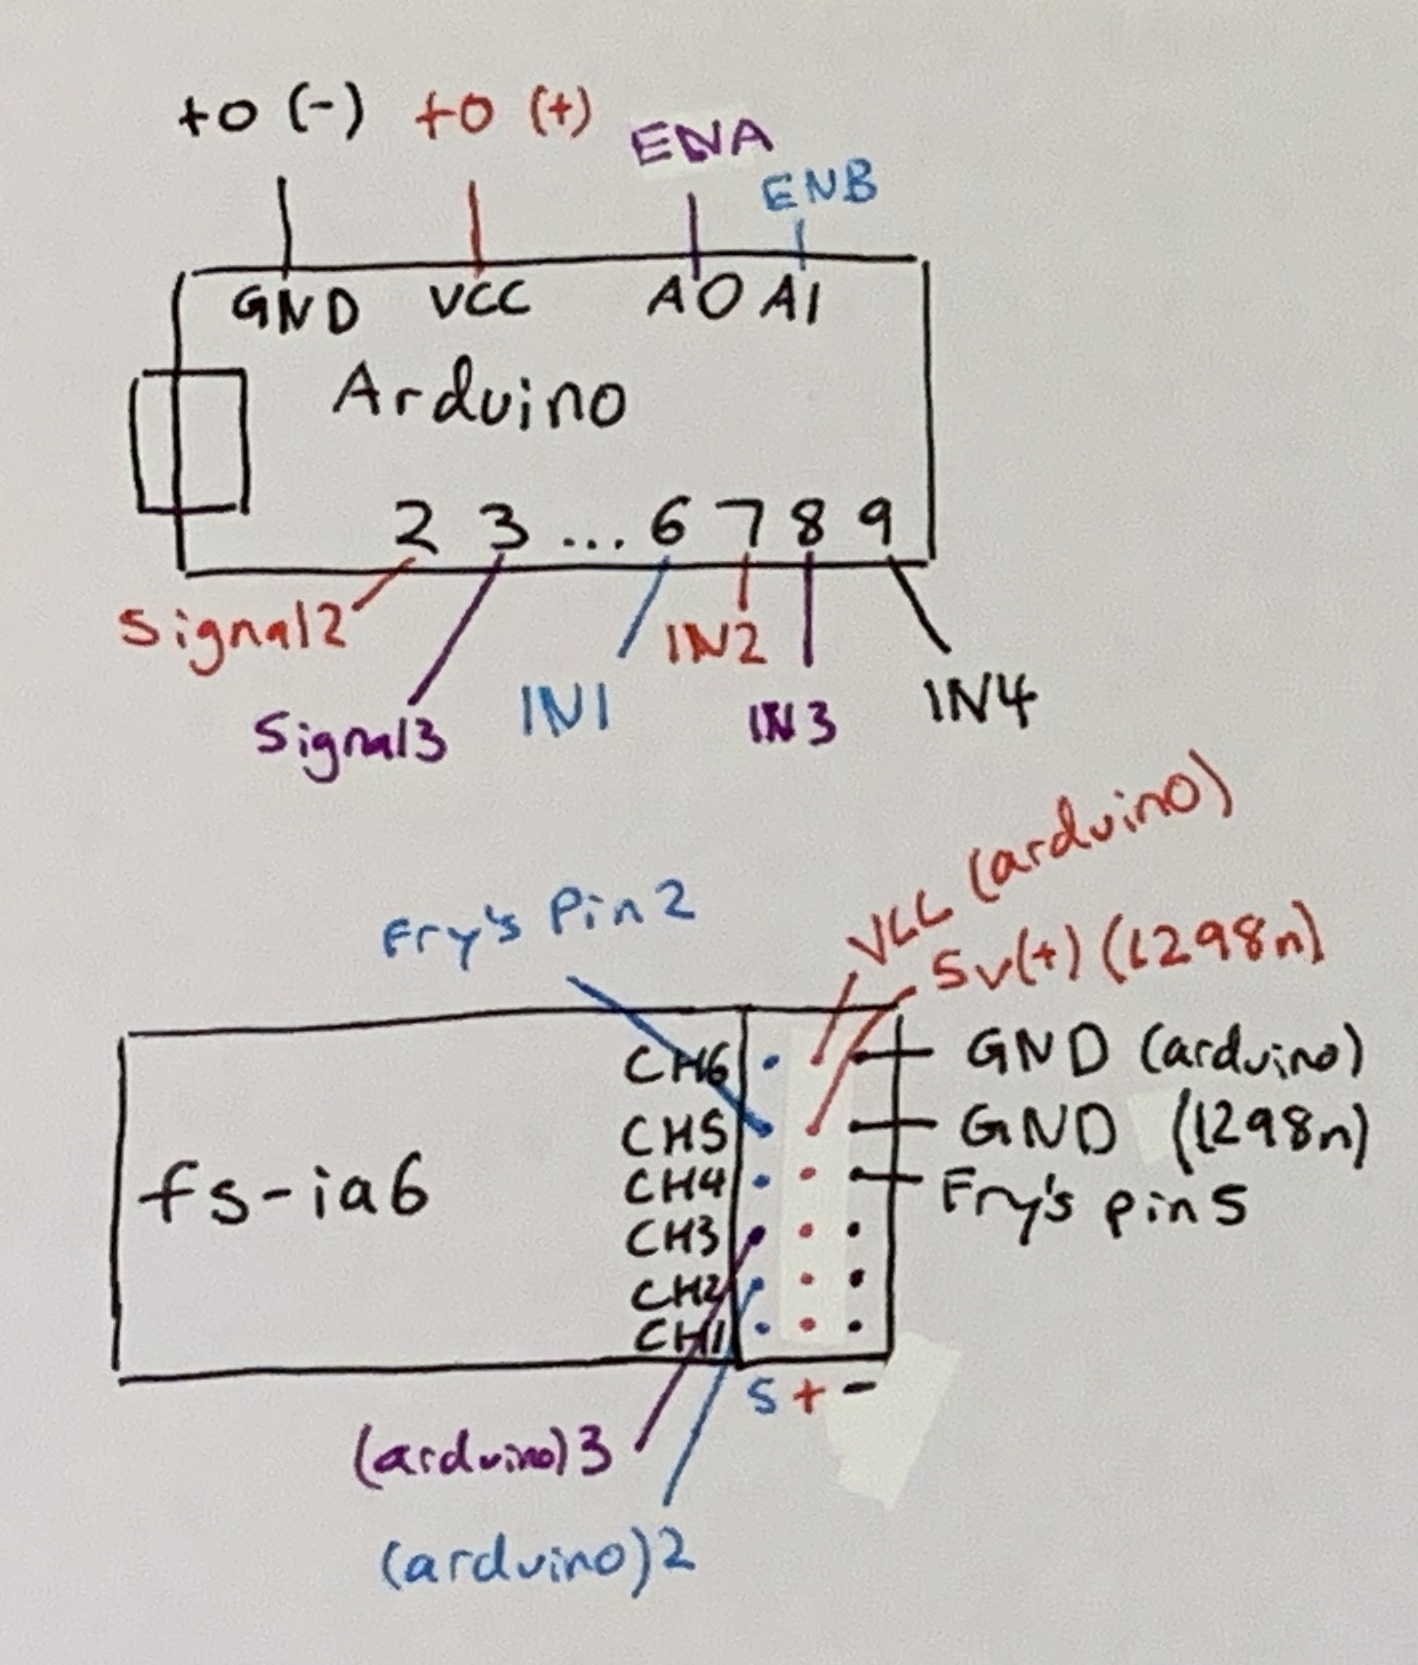 to (-) to (+) ENA
ENB
GND VCC A0 A1
Arduino
2 3 ... 6 7 8 9
Signal2
IN2
Signal3 IN1 IN3 IN4
VCC (arduino)
Fry's Pin 2
5v(+) (l298n)
CH6 GND (arduino)
CH5 GND (l298n)
fs-ia6 CH4 Fry's pin 5
CH3
CH2
CH1
S + -
(arduino)3
(arduino)2